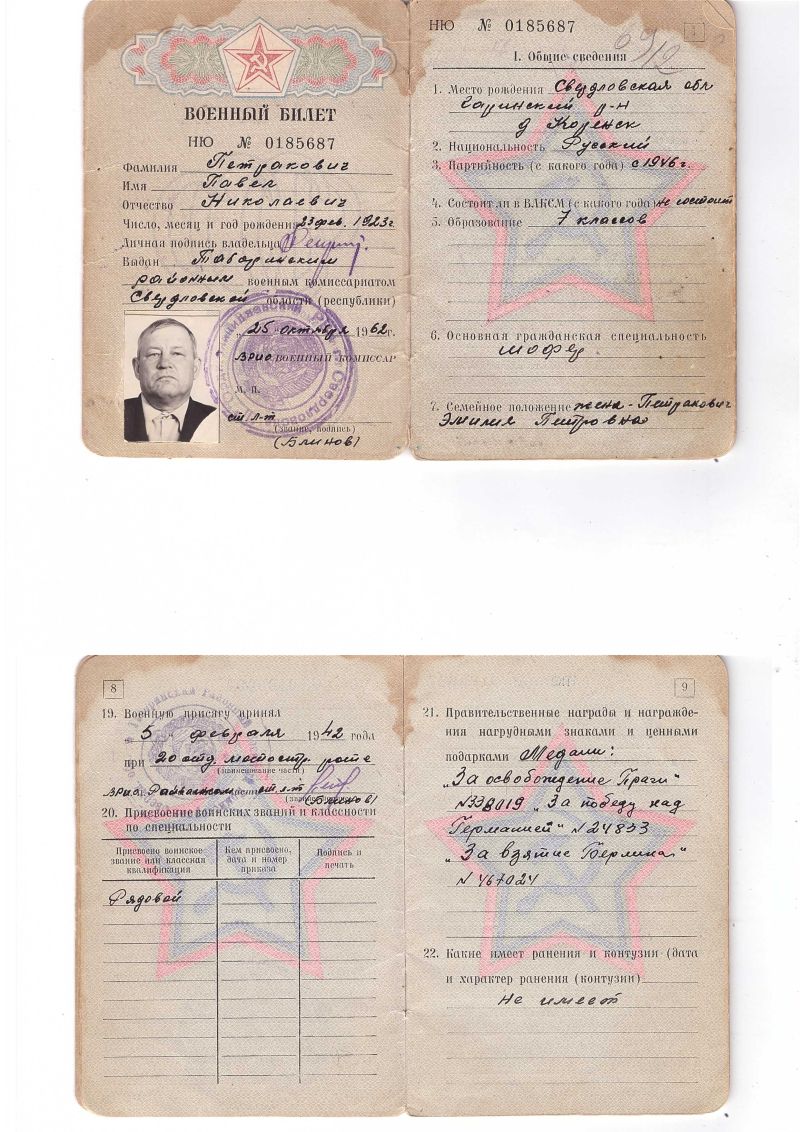 ВОЕННЫЙ БИЛЕТ
НЮ № 0185687
Фамилия Петракович
Имя Павел
Отчество Николаевич
Число, месяц и год рождения 23 фев. 1923 г.
Личная подпись владельца
Выдан Таборинским
районным военным комиссариатом
Свердловской области (республики)
„25" октября 1962 г.
Врио ВОЕННЫЙ КОМИССАР
М. П.
ст. л-т
(звание, подпись)
(Блинов)
НЮ № 0185687
1
I. Общие сведения
1. Место рождения Свердловская обл
Гаринский р-н
д Коренск
2. Национальность Русский
3. Партийность (с какого года) с 1946 г.
4. Состоит ли в ВЛКСМ (с какого года) не состоит
5. Образование 7 классов
6. Основная гражданская специальность
шофер
7. Семейное положение жена - Петракович
Эмилия Петровна
8
19. Военную присягу принял
5 - февраля 1942 года
при 20 отд. мотостр. роте
(наименование части)
врио. Райвоенком ст. л-т
(Блинов)
20. Присвоение воинских званий и классности
по специальности
Присвоено воинское звание или классная квалификация
Кем присвоено, дата и номер приказа
Подпись и печать
Рядовой
9
21. Правительственные награды и награжде-
ния нагрудными знаками и ценными
подарками Медали:
„За освобождение Праги"
№338019 „За победу над
Германией" №24853
„За взятие Берлина"
№467024
22. Какие имеет ранения и контузии (дата
и характер ранения (контузии)
Не имеет